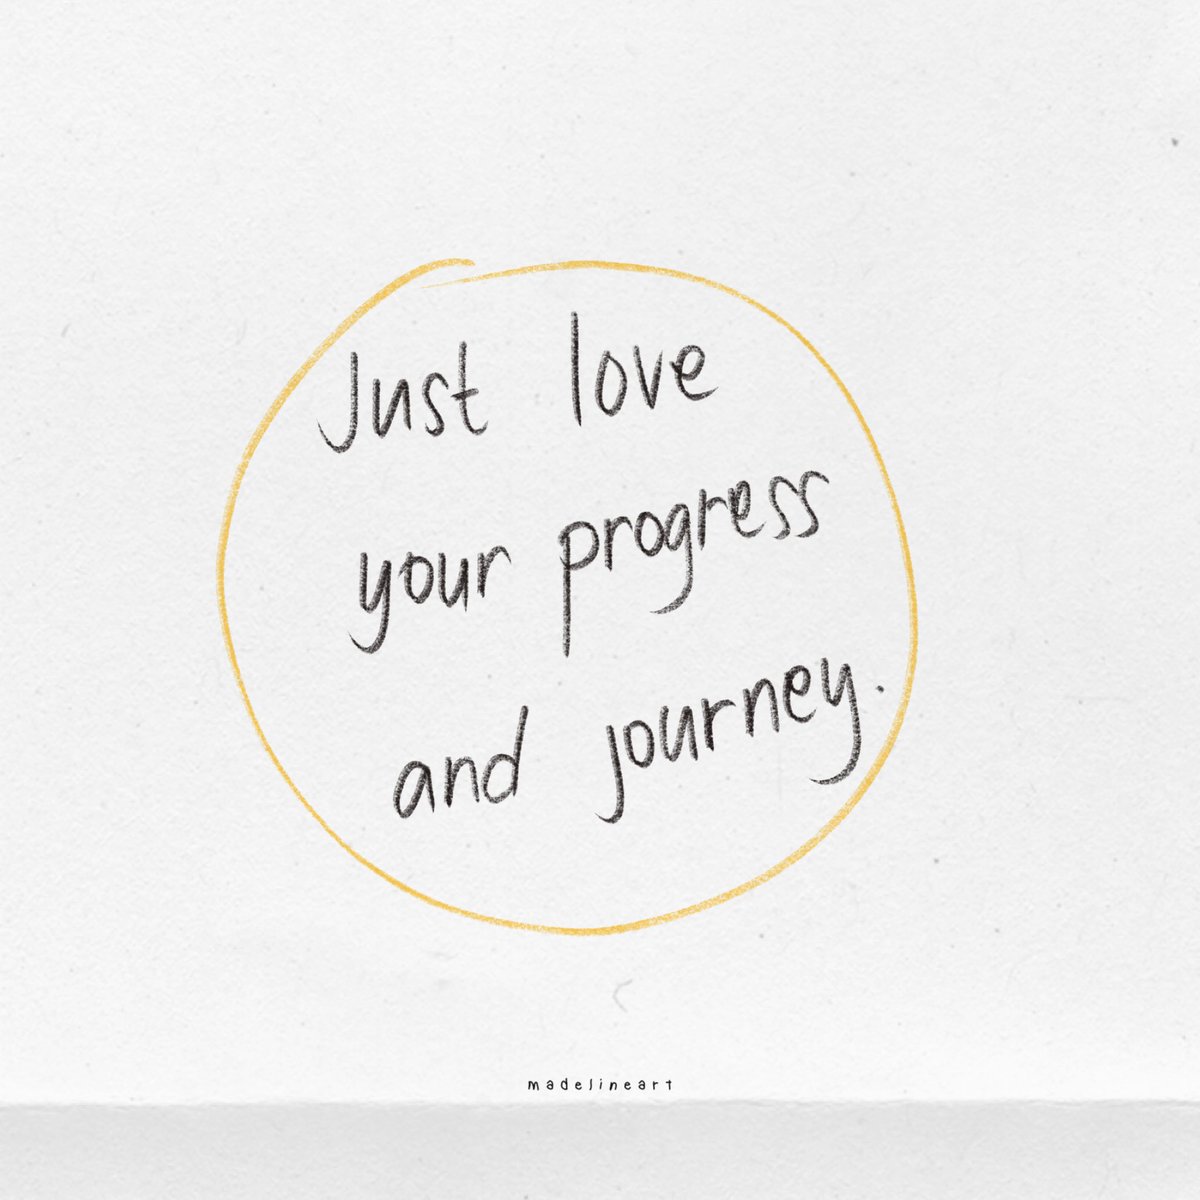 Just love
your progress
and journey.
madelineart